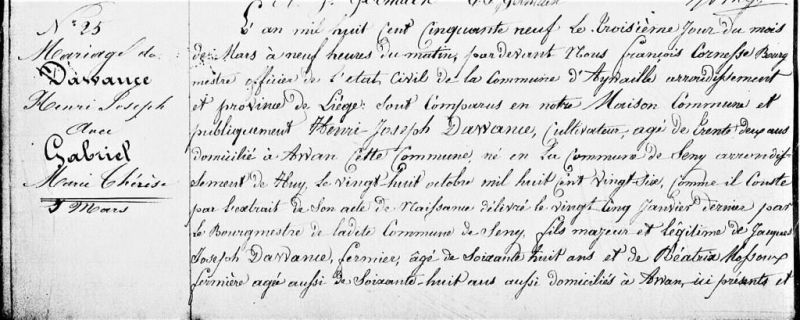 N° 25
Mariage de
Dawance
Henri Joseph
avec
Gabriel
Marie Thérèse
3 Mars
L'an mil huit cent cinquante neuf le troisième jour du mois
de Mars à neuf heures du matin, pardevant Nous François Cornesse Bourg
mestre officier de l'état Civil de la Commune d'Aywaille arrondissement
et province de Liége: sont comparus en notre Maison Commune et
publiquement Henri-Joseph Dawance, Cultivateur, agé de trente deux ans
domicilié à Awan Cette Commune, né en la Commune de Seny arrondis
sement de Huy, le vingt huit octobre mil huit cent vingt-six, comme il conste
par l'extrait de son acte de Naissance délivré le vingt cinq Janvier dernier par
le Bourgmestre de ladite Commune de Seny, fils majeur et légitime de Jacques
Joseph Dawance, fermier, âgé de Soixante huit ans et de Béatrix Mossoux
fermière agée aussi de Soixante-huit ans aussi domiciliés à Awan, ici présents et